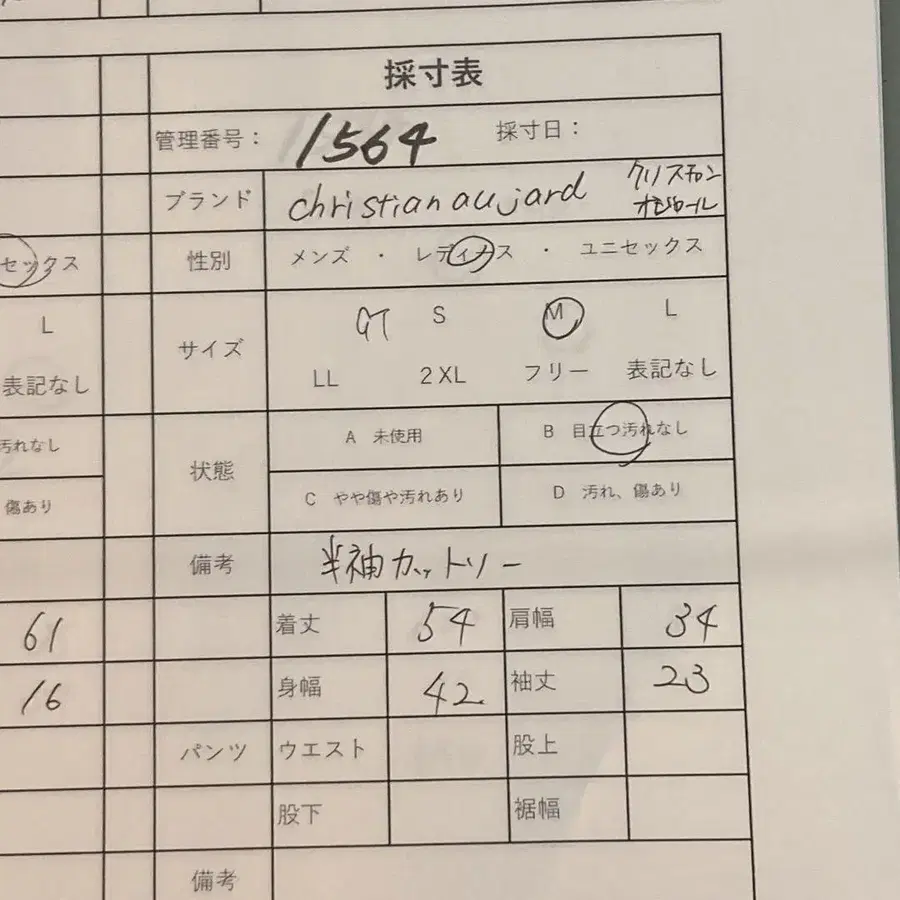 採寸表
管理番号： 1564 採寸日：
ブランド christian aujard クリスチャン
オジャール
セックス 性別 メンズ ・ レディース ・ ユニセックス
L サイズ S M L
表記なし LL 2XL フリー 表記なし
汚れなし 状態 A 未使用 B 目立つ汚れなし
傷あり C やや傷や汚れあり D 汚れ、傷あり
備考 半袖カットソー
61 着丈 54 肩幅 34
16 身幅 42 袖丈 23
パンツ ウエスト 股上
股下 裾幅
備考